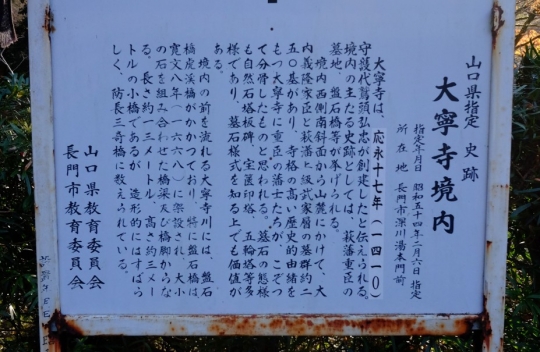 山口県指定 史跡
大寧寺境内
指定年月日 昭和五十四年二月六日指定
所在地 長門市深川湯本門前
大寧寺は、応永十七年(一四一〇)
守護代鷲頭弘忠が創建したと伝えられる。
境内の主たる史跡としては、萩藩重臣の
墓地、盤石橋等が挙げられる。
境内西側南斜面から山麓にかけて、大
内義隆家臣と萩藩上級武家層の墓群約二
五〇基があり、寺格の高い歴史的由緒を
もつ大寧寺に重臣の藩士たちが、こぞっ
て分骨したものと思われる。墓石の態様
も自然石塔板碑、宝篋印塔、五輪塔等多
様であり、墓石様式を知る上でも価値が
ある。
境内の前を流れる大寧寺川には、盤石
橋虎渓橋がかかっており、特に盤石橋は、
寛文八年(一六六八)に架設され、大小
の石を組み合わせた橋梁及び橋脚からな
る。長さ約一三メートル、高さ約三メー
トルの小橋であるが、造形的にはすばら
しく、防長三奇橋に数えられている。
山口県教育委員会
長門市教育委員会